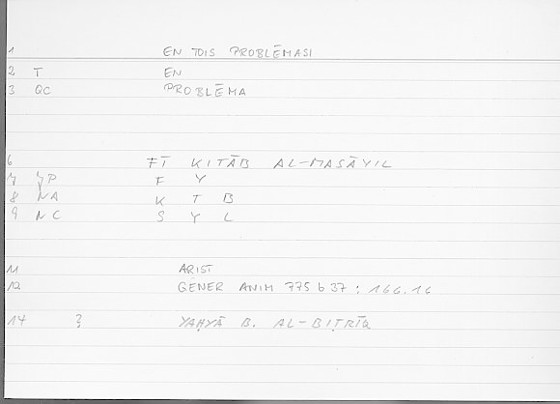 1 EN TOIS PROBLĒMASI
2 T EN
3 QC PROBLĒMA
6 FĪ KITĀB AL-MASĀYIL
7 YP F Y
8 NA K T B
9 NC S Y L
11 ARIST
12 GENER ANIM 775 b 37 : 166.16
14 ? YAḤYĀ B. AL-BIṬRĪQ